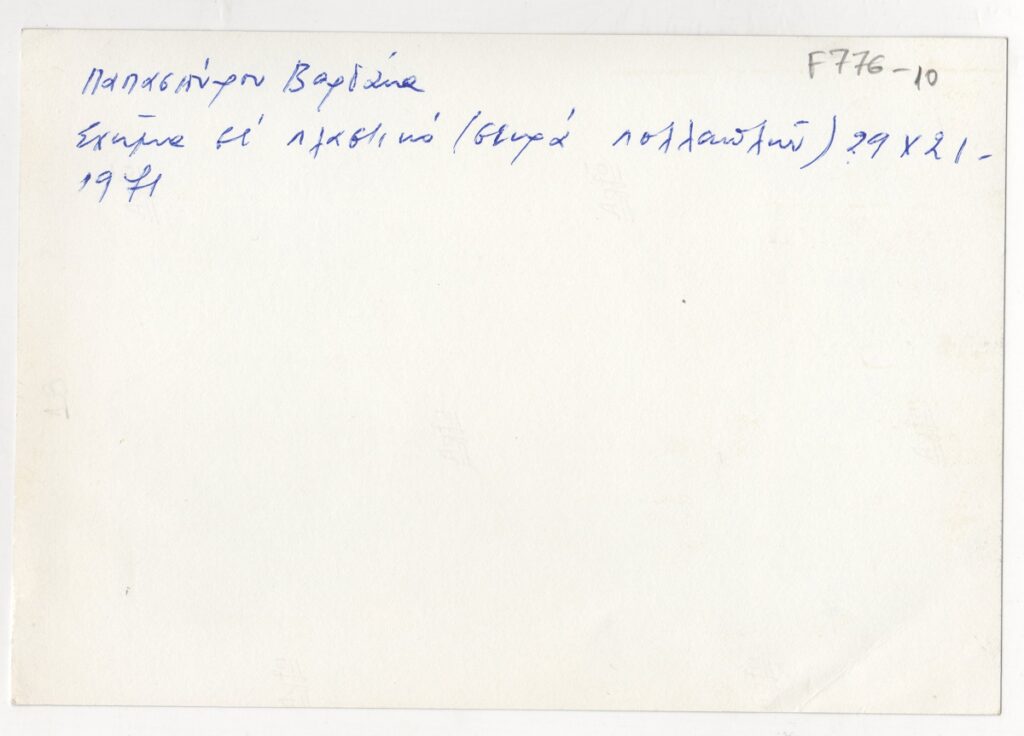 F776-10
Παπασπύρου Βαρδάκα
Σχῆμα σέ πλαστικό (σειρά πολλαπλῶν) 29 x 21 -
1971